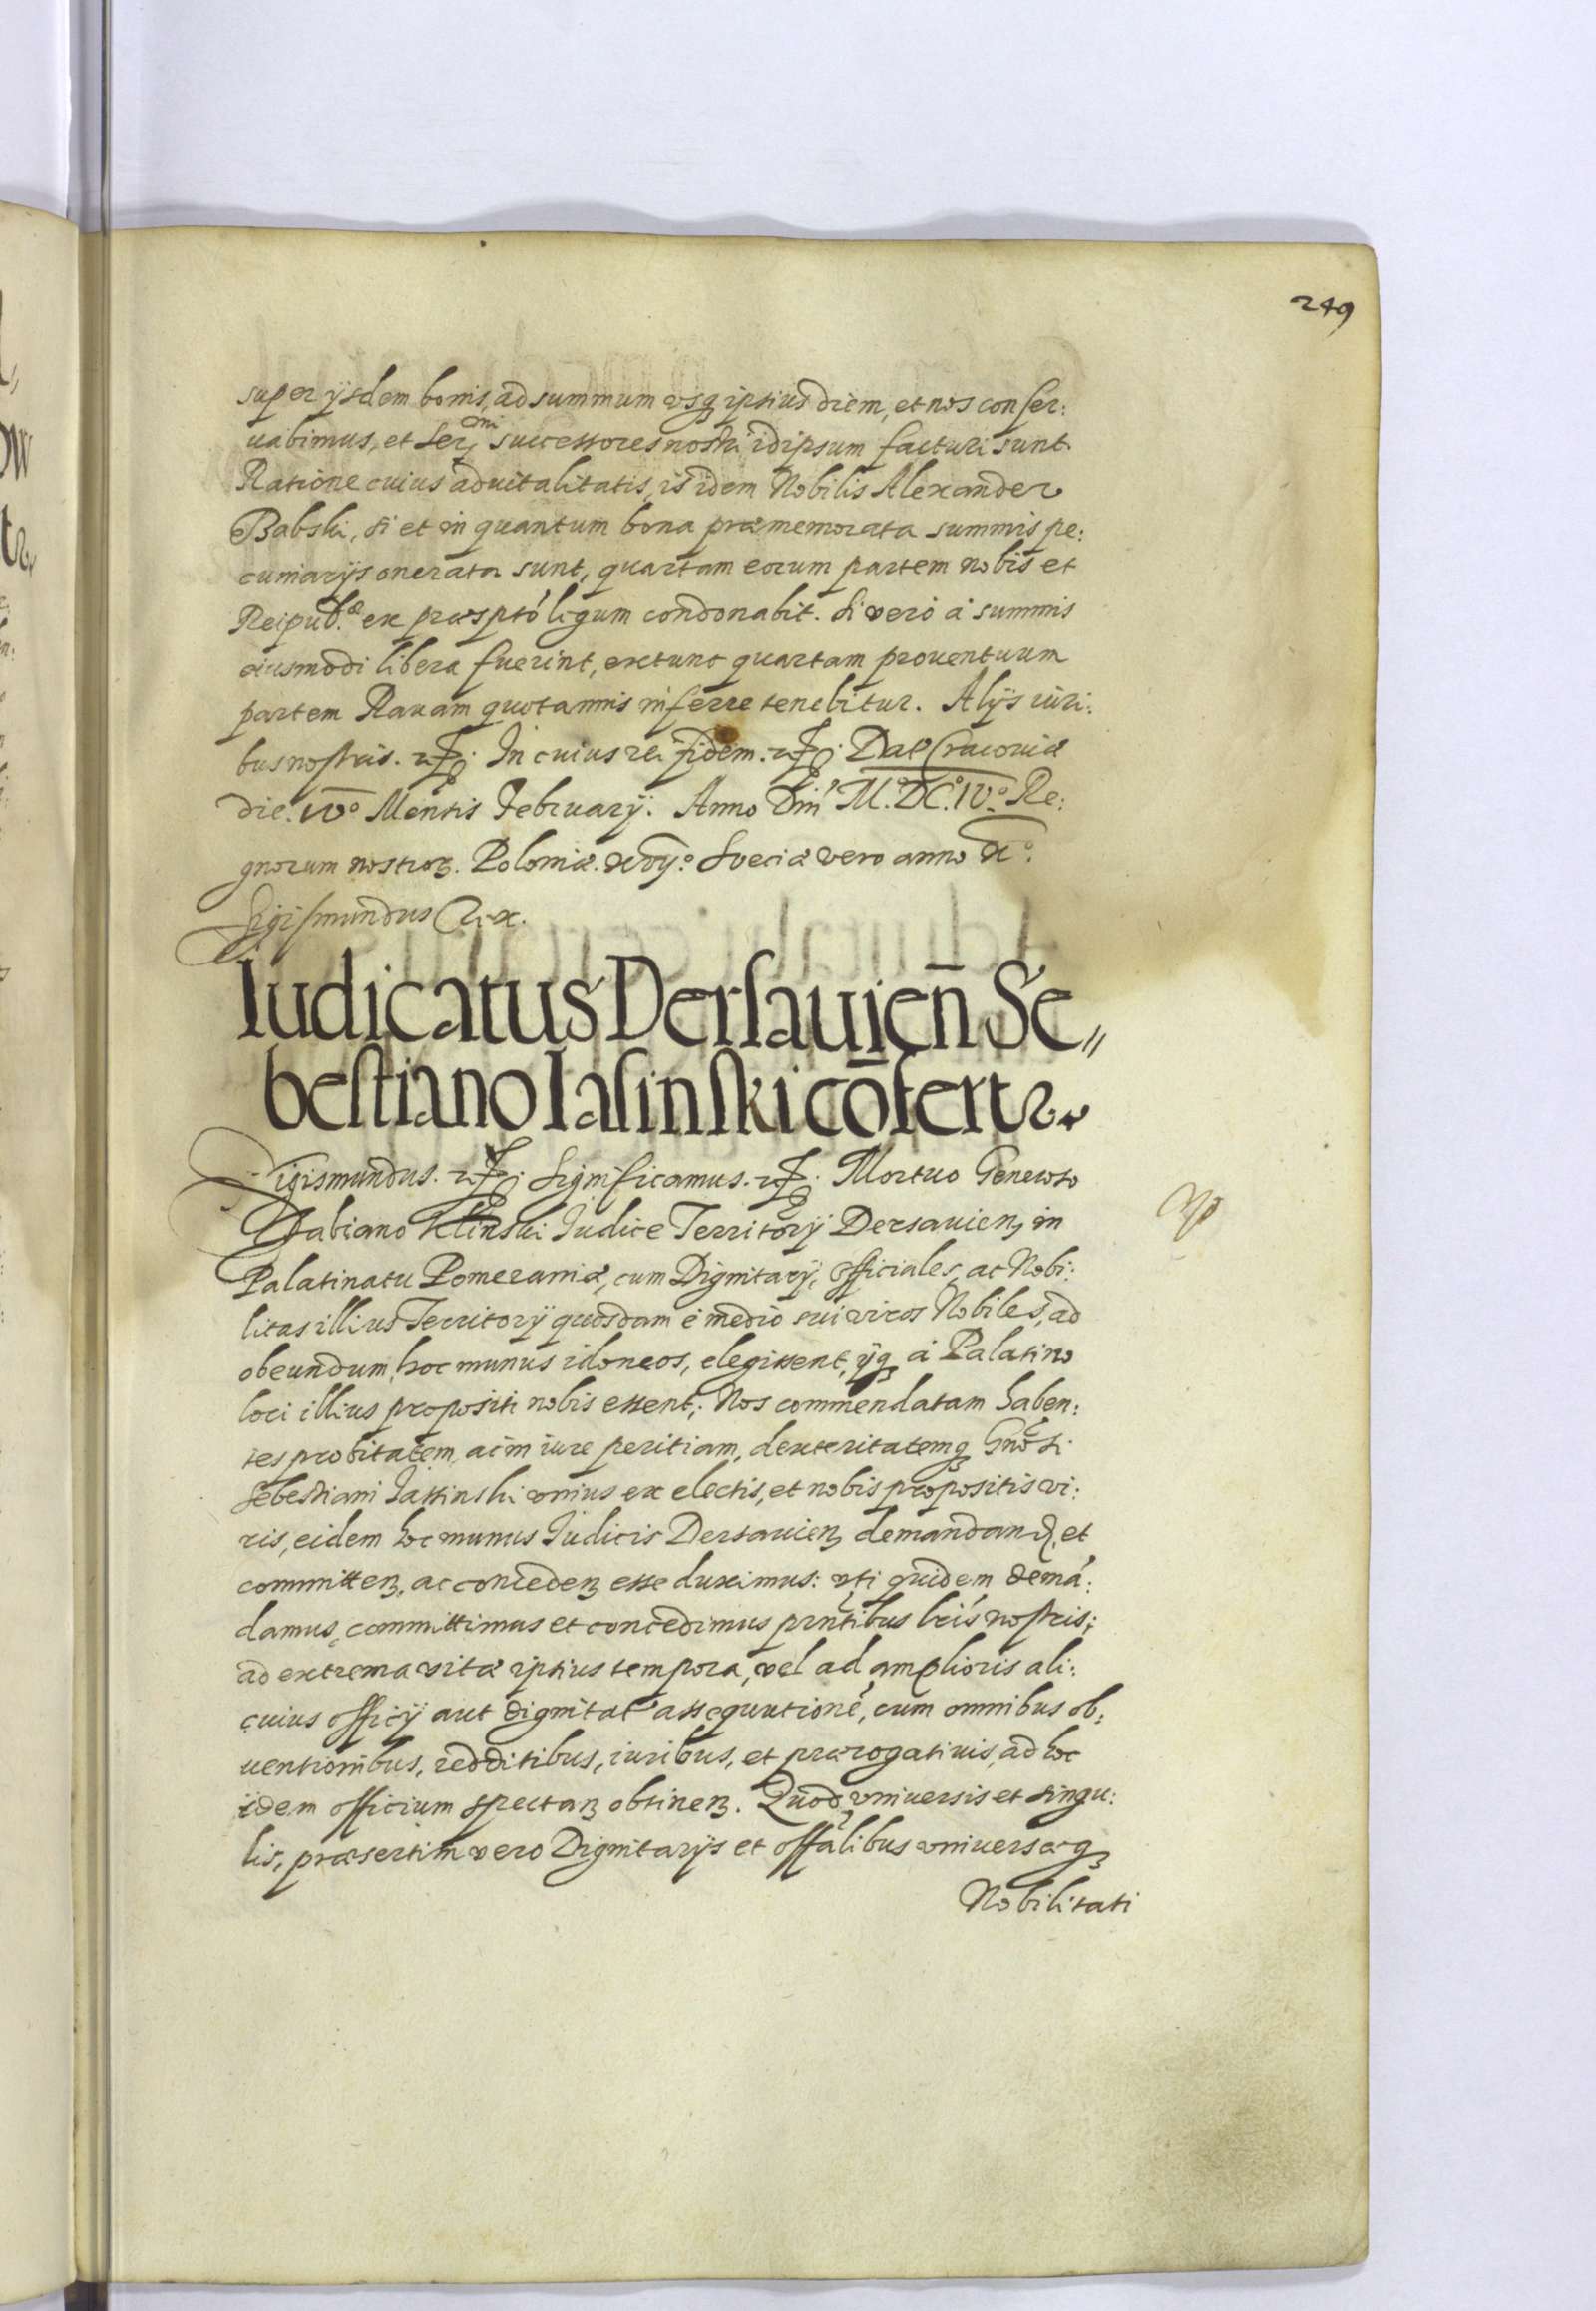 249
super ijsdem bonis, ad summum vsq ipsius diem, et nos conser:
uabimus, et Ser^mi successores nostri idipsum facturi sunt.
Ratione cuius aduitalitatis, is idem Nobilis Alexander
Babski, si et in quantum bona præmemorata summis pe:
cuniarijs onerata sunt, quartam eorum partem nobis et
Reipub.æ ex præsptó legum condonabit. Si vero à summis
eiusmodi libera fuerint, extunc quartam prouentuum
partem Rauam quotannis inferre tenebitur. Alijs iuri:
bus nostris. etc. In cuius rei fidem. etc. Dat Cracouiæ
die. IVº Mensis February. Anno Dni M.DC.IVº. Re:
gnorum nostroꝝ. Poloniæ. xvijº. Sueciæ vero anno xº.
Sigismundus Rex.
Iudicatus Dersauien̄ Se„
bestiano Iasinski cōfert~
Sigismundus. etc. Significamus. etc. Mortuo Generoso
Fabiano Klinski Iudice Territorÿ Dersauienꝫ in
Palatinatu Pomeraniæ, cum Dignitarÿ, officiales, ac Nobi:
litas illius Territorÿ quosdam è medio sui viros Nobiles, ad
obeundum hoc munus idoneos, elegissent, ijq à Palatino
loci illius propositi nobis essent; Nos commendatam haben:
tes probitatem, ac in iure peritiam, dexteritatemq Gnosi
Sebestiani Jassinski vnius ex electis, et nobis propositis vi:
ris, eidem hoc munus Iudicis Dersauienꝫ demandanꝺ, et
committenꝫ, ac concedenꝫ esse duximus: vti quidem demá:
damus, committimus et concedimus prntibus lris nostris;
ad extrema vitæ ipsius tempora, vel ad amplioris ali:
cuius officÿ aut dignitat assequutioné, cum omnibus ob:
uentionibus, redditibus, iuribus, et prærogatiuis, ad hoc
idem officium spectanꝫ obtinenꝫ. Quod vniuersis et singu:
lis, præsertim vero Dignitarijs et offalibus vniuersæq
Nobilitati